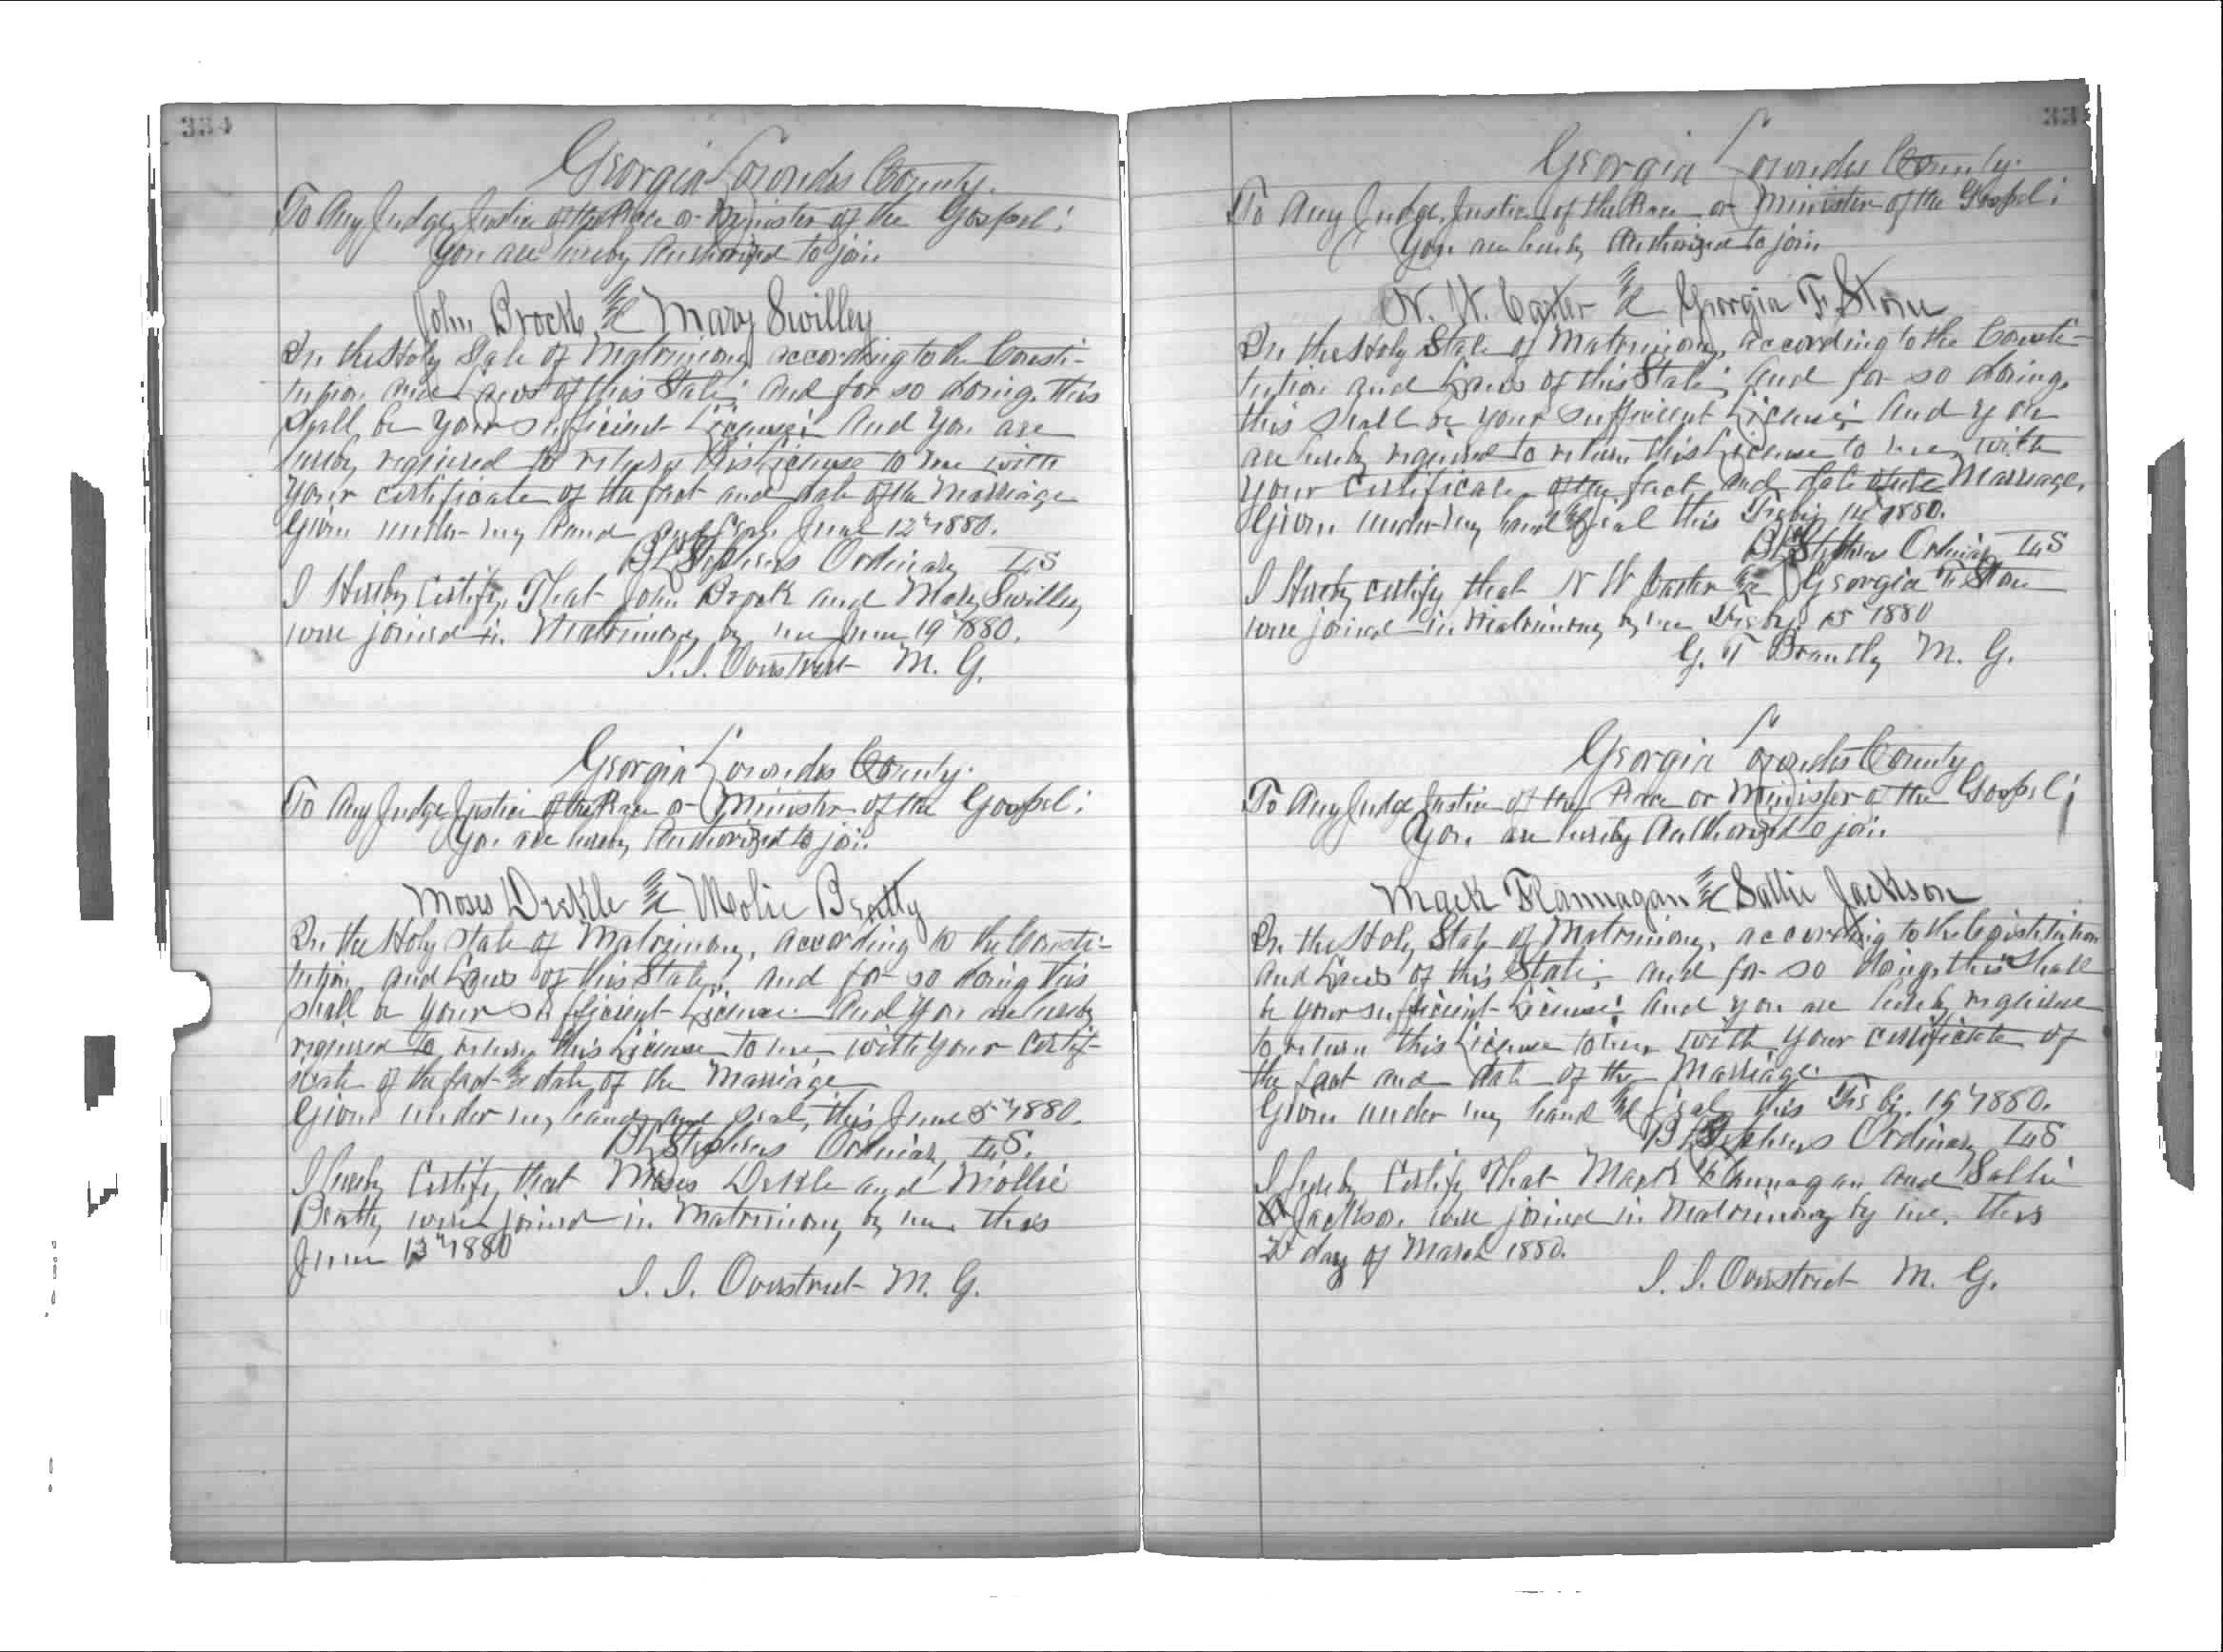 334
Georgia Lowndes County.
To Any Judge, Justice of the Peace or Minister of the Gospel:
You are hereby Authorized to join
John Brock & Mary Swilley
In the Holy State of Matrimony, according to the Consti-
tution and Laws of this State; and for so doing this
shall be your sufficient License; And you are
hereby required to return this License to me with
your certificate of the fact and date of the Marriage
Given under my hand and seal June 12" 1880.
Ordinary LS
I Hereby Certify, That John Brock and Mary Swilley
were joined in Matrimony by me June 19" 1880.
Overstreet M. G.
Georgia Lowndes County.
To Any Judge Justice of the Peace or Minister of the Gospel:
You are hereby Authorized to join
Moses Dekle & Molie Beatty
In the Holy State of Matrimony, according to the Consti-
tution and Laws of this State, and for so doing this
shall be your sufficient License. And you are hereby
required to return this License to me, with your Certif-
icate of the fact & date of the Marriage
Given under my hand and seal, this June 5" 1880.
Ordinary LS.
I hereby Certify that Moses Dekle and Mollie
Beatty were joined in Matrimony by me this
June 13" 1880
Overstreet M. G.
33
Georgia Lowndes County.
To Any Judge, Justice of the Peace or Minister of the Gospel:
You are hereby Authorized to join
N. W. Carter & Georgia F. Stone
In the Holy State of Matrimony, according to the Consti-
tution and Laws of this State; And for so doing,
this shall be your sufficient License; And you
are hereby required to return this License to me, with
your Certificate of the fact and date of the Marriage.
Given under my hand & seal this 1880.
Ordinary LS
I Hereby certify that N W Carter & Georgia F. Stone
were joined in Matrimony by me 15" 1880
G. T Brantly M. G.
Georgia Lowndes County
To Any Judge Justice of the Peace or Minister of the Gospel;
You are hereby Authorized to join
Mack Flannagan & Sallie Jackson
In the Holy State of Matrimony, according to the Constitution
and Laws of this State; and for so doing, this shall
be your sufficient License: And you are hereby required
to return this License to me with your certificate of
the fact and date of the Marriage.
Given under my hand & seal this 19" 1880.
Ordinary LS
I hereby Certify That Mack Flannagan and Sallie
Jackson were joined in Matrimony by me, this
day of March 1880.
Overstreet M. G.